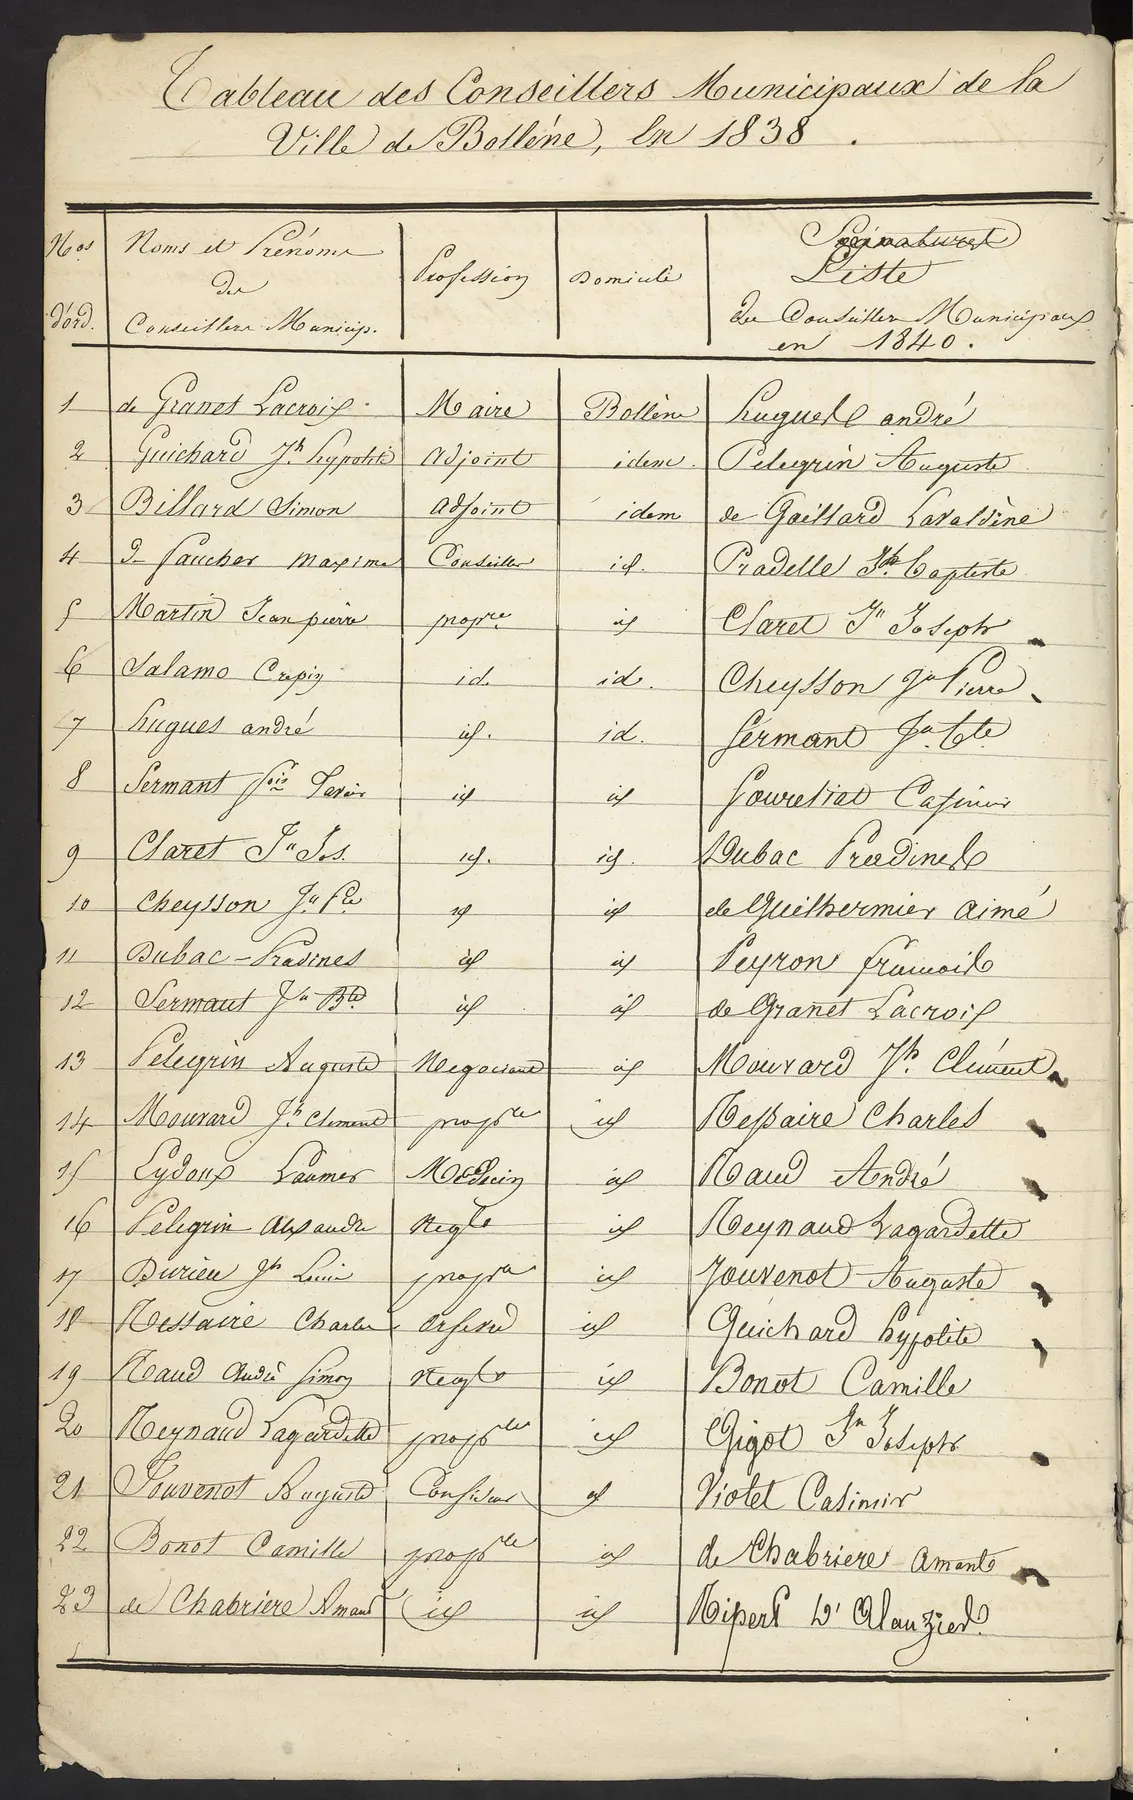 Tableau des Conseillers Municipaux de la
Ville de Bollène, En 1838.
Nos d'ord. Noms et Prénoms des Conseillers Municip. Profession Domicile Signatures Liste des Conseillers Municipaux en 1840.
1 de Granet Lacroix Maire Bollène hugues andré
2 Guichard Jh. hypolite Adjoint idem Pelegrin Auguste
3 Billard Simon Adjoint idem de Gaillard Lavaldène
4 De faucher maxime Conseiller id. Pradelle Jh. baptiste
5 Martin Jean pierre propre id Claret Jn Joseph
6 Salamo Crepin id. id. Cheysson Jn Pierre
7 hugues andré id. id. Sermant Jn. bte
8 Sermant fois Xavier id id Gourdiat Casimir
9 Claret Jn Jos. id. id. Dubac Pradines
10 Cheysson Jn. Pre id id de Guilhermier aimé
11 Dubac-Pradines id id Peyron françois
12 Sermant Jn Bte id id de Granet Lacroix
13 Pelegrin Auguste Negociant id Mouvard Jh. Clément
14 Mouvard Jh. Clement propre id Ressaire Charles
15 Eydoux Médecin id Raud André
16 Pelegrin alexandre Negt id Reynaud Lagardette
17 Durieu Jh propre id Jouvenot Auguste
18 Ressaire Charles orfevre id Guichard hypolite
19 Raud André Simon Negt id Bonot Camille
20 Reynaud Lagardette propre id Gigot Jn Joseph
21 Jouvenot Auguste Confiseur id Violet Casimir
22 Bonot Camille propre id de Chabriere Amant
23 de Chabriere Amant id id Ripert D'Alauzier.